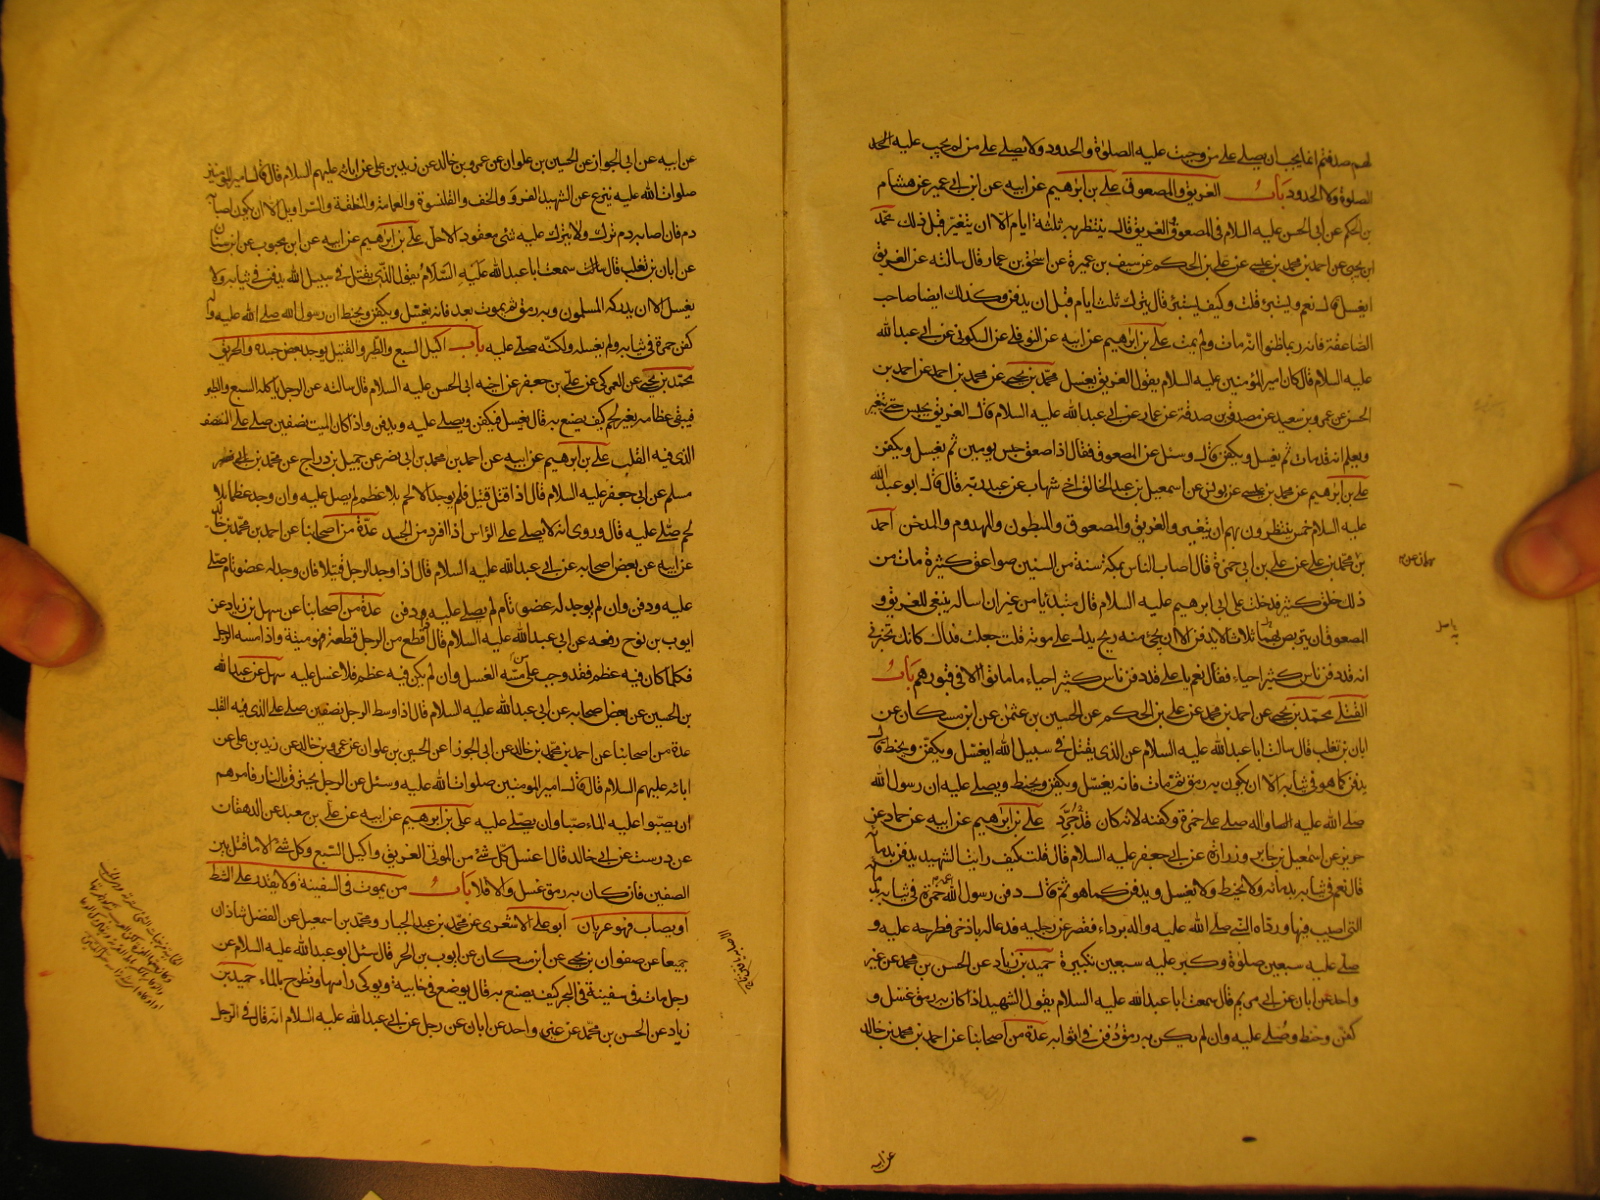 لهم صدقتم انما يجب ان يصلى على من وجبت عليه الصلوة والحدود ولا يصلى على من لم يجب عليه
الصلوة ولا الحدود باب الغريق والمصعوق على بن ابرهيم عن ابيه عن ابن ابى عمير عن هشام
بن الحكم عن ابى الحسن عليه السلام فى المصعوق والغريق قال ينتظر به ثلثة ايام الا ان يتغير قبل ذلك محمد
ابن يحيى عن احمد بن محمد بن عيسى عن على بن الحكم عن سيف بن عميرة عن اسحق بن عمار قال سالته عن الغريق
ايغسل قال نعم ويستبرئ قلت وكيف يستبرئ قال يترك ثلثة ايام قبل ان يدفن وكذلك ايضا صاحب
الصاعقة فانه ربما ظنوا انه مات ولم يمت على بن ابرهيم عن ابيه عن النوفلى عن السكونى عن ابى عبد الله
عليه السلام قال كان امير المؤمنين عليه السلام يقول الغريق يغسل محمد بن يحيى عن محمد بن احمد عن احمد بن
الحسن عن عمرو بن سعيد عن مصدق بن صدقة عن عمار عن ابى عبد الله عليه السلام قال الغريق يحبس حتى يتغير
ويعلم انه قد مات ثم يغسل ويكفن قال وسئل عن المصعوق فقال اذا صعق حبس يومين ثم يغسل ويكفن
على بن ابرهيم عن محمد بن عيسى عن يونس عن اسمعيل بن عبد الخالق اخى شهاب بن عبد ربه قال قال ابو عبد الله
عليه السلام خمس ينتظرون بهم ان يتغيروا الغريق والمصعوق والمبطون والمهدوم والمدخن احمد
بن محمد بن على عن على بن ابى حمزة قال اصاب الناس بمكة سنة من السنين صواعق كثيرة مات من
ذلك خلق كثير فدخلت على ابى ابرهيم عليه السلام قال مبتديا من غير ان اساله ينبغى للغريق و
المصعوق ان يتربص بهما ثلاثا لا يدفن الا ان يجئ منه ريح يدل على موته قلت جعلت فداك كانك تخبرنى
انه قد دفن ناس كثير احياء فقال نعم يا على قد دفن ناس كثير احياء ما ماتوا الا فى قبورهم باب
القتلى محمد بن يحيى عن احمد بن محمد عن على بن الحكم عن الحسين بن عثمن عن ابن مسكان عن
ابان بن تغلب قال سالت ابا عبد الله عليه السلام عن الذى يقتل فى سبيل الله ايغسل ويكفن ويحنط قال
يدفن كما هو فى ثيابه الا ان يكون به رمق ثم مات فانه يغسل ويكفن ويحنط ويصلى عليه ان رسول الله
صلى الله عليه واله صلى على حمزة وكفنه لانه كان قد جرد على بن ابرهيم عن ابيه عن حماد عن
حريز عن اسمعيل بن جابر وزرارة عن ابى جعفر عليه السلام قال قلت كيف رايت الشهيد يدفن بدمائه
قال نعم فى ثيابه بدمائه ولا يحنط ولا يغسل ويدفن كما هو ثم قال دفن رسول الله عمه حمزة فى ثيابه بدمائه
التى اصيب فيها ورداه النبى صلى الله عليه واله برداء فقصر عن رجليه فدعا له باذخر فطرحه عليه و
صلى عليه سبعين صلوة وكبر عليه سبعين تكبيرة حميد بن زياد عن الحسن بن محمد عن غير
واحد عن ابان عن ابى مريم قال سمعت ابا عبد الله عليه السلام يقول الشهيد اذا كان به رمق غسل و
كفن وحنط وصلى عليه وان لم يكن به رمق دفن فى اثوابه عدة من اصحابنا عن احمد بن محمد بن خالد
عن ابيه
عن ابيه عن ابى الجوزا عن الحسين بن علوان عن عمرو بن خالد عن زيد بن على عن ابائه عليهم السلام قال قال امير المؤمنين
صلوات الله عليه ينزع عن الشهيد الفرو والخف والقلنسوة والعمامة والمنطقة والسراويل الا ان يكون اصابه
دم فان اصابه دم ترك ولا يترك عليه شئ معقود الا حل على بن ابرهيم عن ابيه عن ابن محبوب عن ابن سنان
عن ابان بن تغلب قال سمعت ابا عبد الله عليه السلام يقول الذى يقتل فى سبيل الله يدفن فى ثيابه ولا
يغسل الا ان يدركه المسلمون وبه رمق ثم يموت بعد فانه يغسل ويكفن ويحنط ان رسول الله صلى الله عليه واله
كفن حمزة فى ثيابه ولم يغسله ولكنه صلى عليه باب اكيل السبع والطير والقتيل يوجد بعض جسده والحريق
محمد بن يحيى عن العمركى عن على بن جعفر عن اخيه ابى الحسن عليه السلام قال سالته عن الرجل ياكله السبع والطير
فيبقى عظامه بغير لحم كيف يصنع به قال يغسل ويكفن ويصلى عليه ويدفن واذا كان الميت نصفين صلى على النصف
الذى فيه القلب على بن ابرهيم عن ابيه عن احمد بن محمد بن ابى نصر عن جميل بن دراج عن محمد بن
مسلم عن ابى جعفر عليه السلام قال اذا قتل قتيل فلم يوجد الا لحم بلا عظم لم يصل عليه وان وجد عظم بلا
لحم صلى عليه قال وروى انه لا يصلى على الراس اذا افرد من الجسد عدة من اصحابنا عن احمد بن محمد بن خالد
عن ابيه عن بعض اصحابه عن ابى عبد الله عليه السلام قال اذا وجد الرجل قتيلا فان وجد له عضو تام صلى
عليه ودفن وان لم يوجد له عضو تام لم يصل عليه ودفن عدة من اصحابنا عن سهل بن زياد عن
ايوب بن نوح رفعه عن ابى عبد الله عليه السلام قال اذا قطع من الرجل قطعة فهو ميتة واذا مسه الرجل
فكلما كان فيه عظم فقد وجب على من مسه الغسل وان لم يكن فيه عظم فلا غسل عليه سهل عن عبد الله
بن الحسين عن بعض اصحابه عن ابى عبد الله عليه السلام قال اذا وسط الرجل بنصفين صلى على الذى فيه القلب
عدة من اصحابنا عن احمد بن محمد بن خالد عن ابى الجوزا عن الحسين بن علوان عن عمرو بن خالد عن زيد بن على عن
ابائه عليهم السلام قال قال امير المومنين صلوات الله عليه وسئل عن الرجل يحترق بالنار فامرهم
ان يصبوا عليه الماء صبا وان يصلى عليه على بن ابرهيم عن ابيه عن على بن معبد عن الدهقان
عن درست عن ابى خالد قال غسل كل شئ من الموتى الغريق واكيل السبع وكل شئ الا ما قتل بين
الصفين فان كان به رمق غسل والا فلا باب من يموت فى السفينة ولا يقدر على الشط
او يصاب فهو عريان ابو على الاشعرى عن محمد بن عبد الجبار ومحمد بن اسمعيل عن الفضل بن شاذان
جميعا عن صفوان بن يحيى عن ابن مسكان عن ايوب بن الحر قال سئل ابو عبد الله عليه السلام عن
رجل مات فى سفينة فى البحر كيف يصنع به قال يوضع فى خابية ويوكى راسها وتطرح بالماء حميد بن
زياد عن الحسن بن محمد عن غير واحد عن ابان عن رجل عن ابى عبد الله عليه السلام انه قال فى الرجل